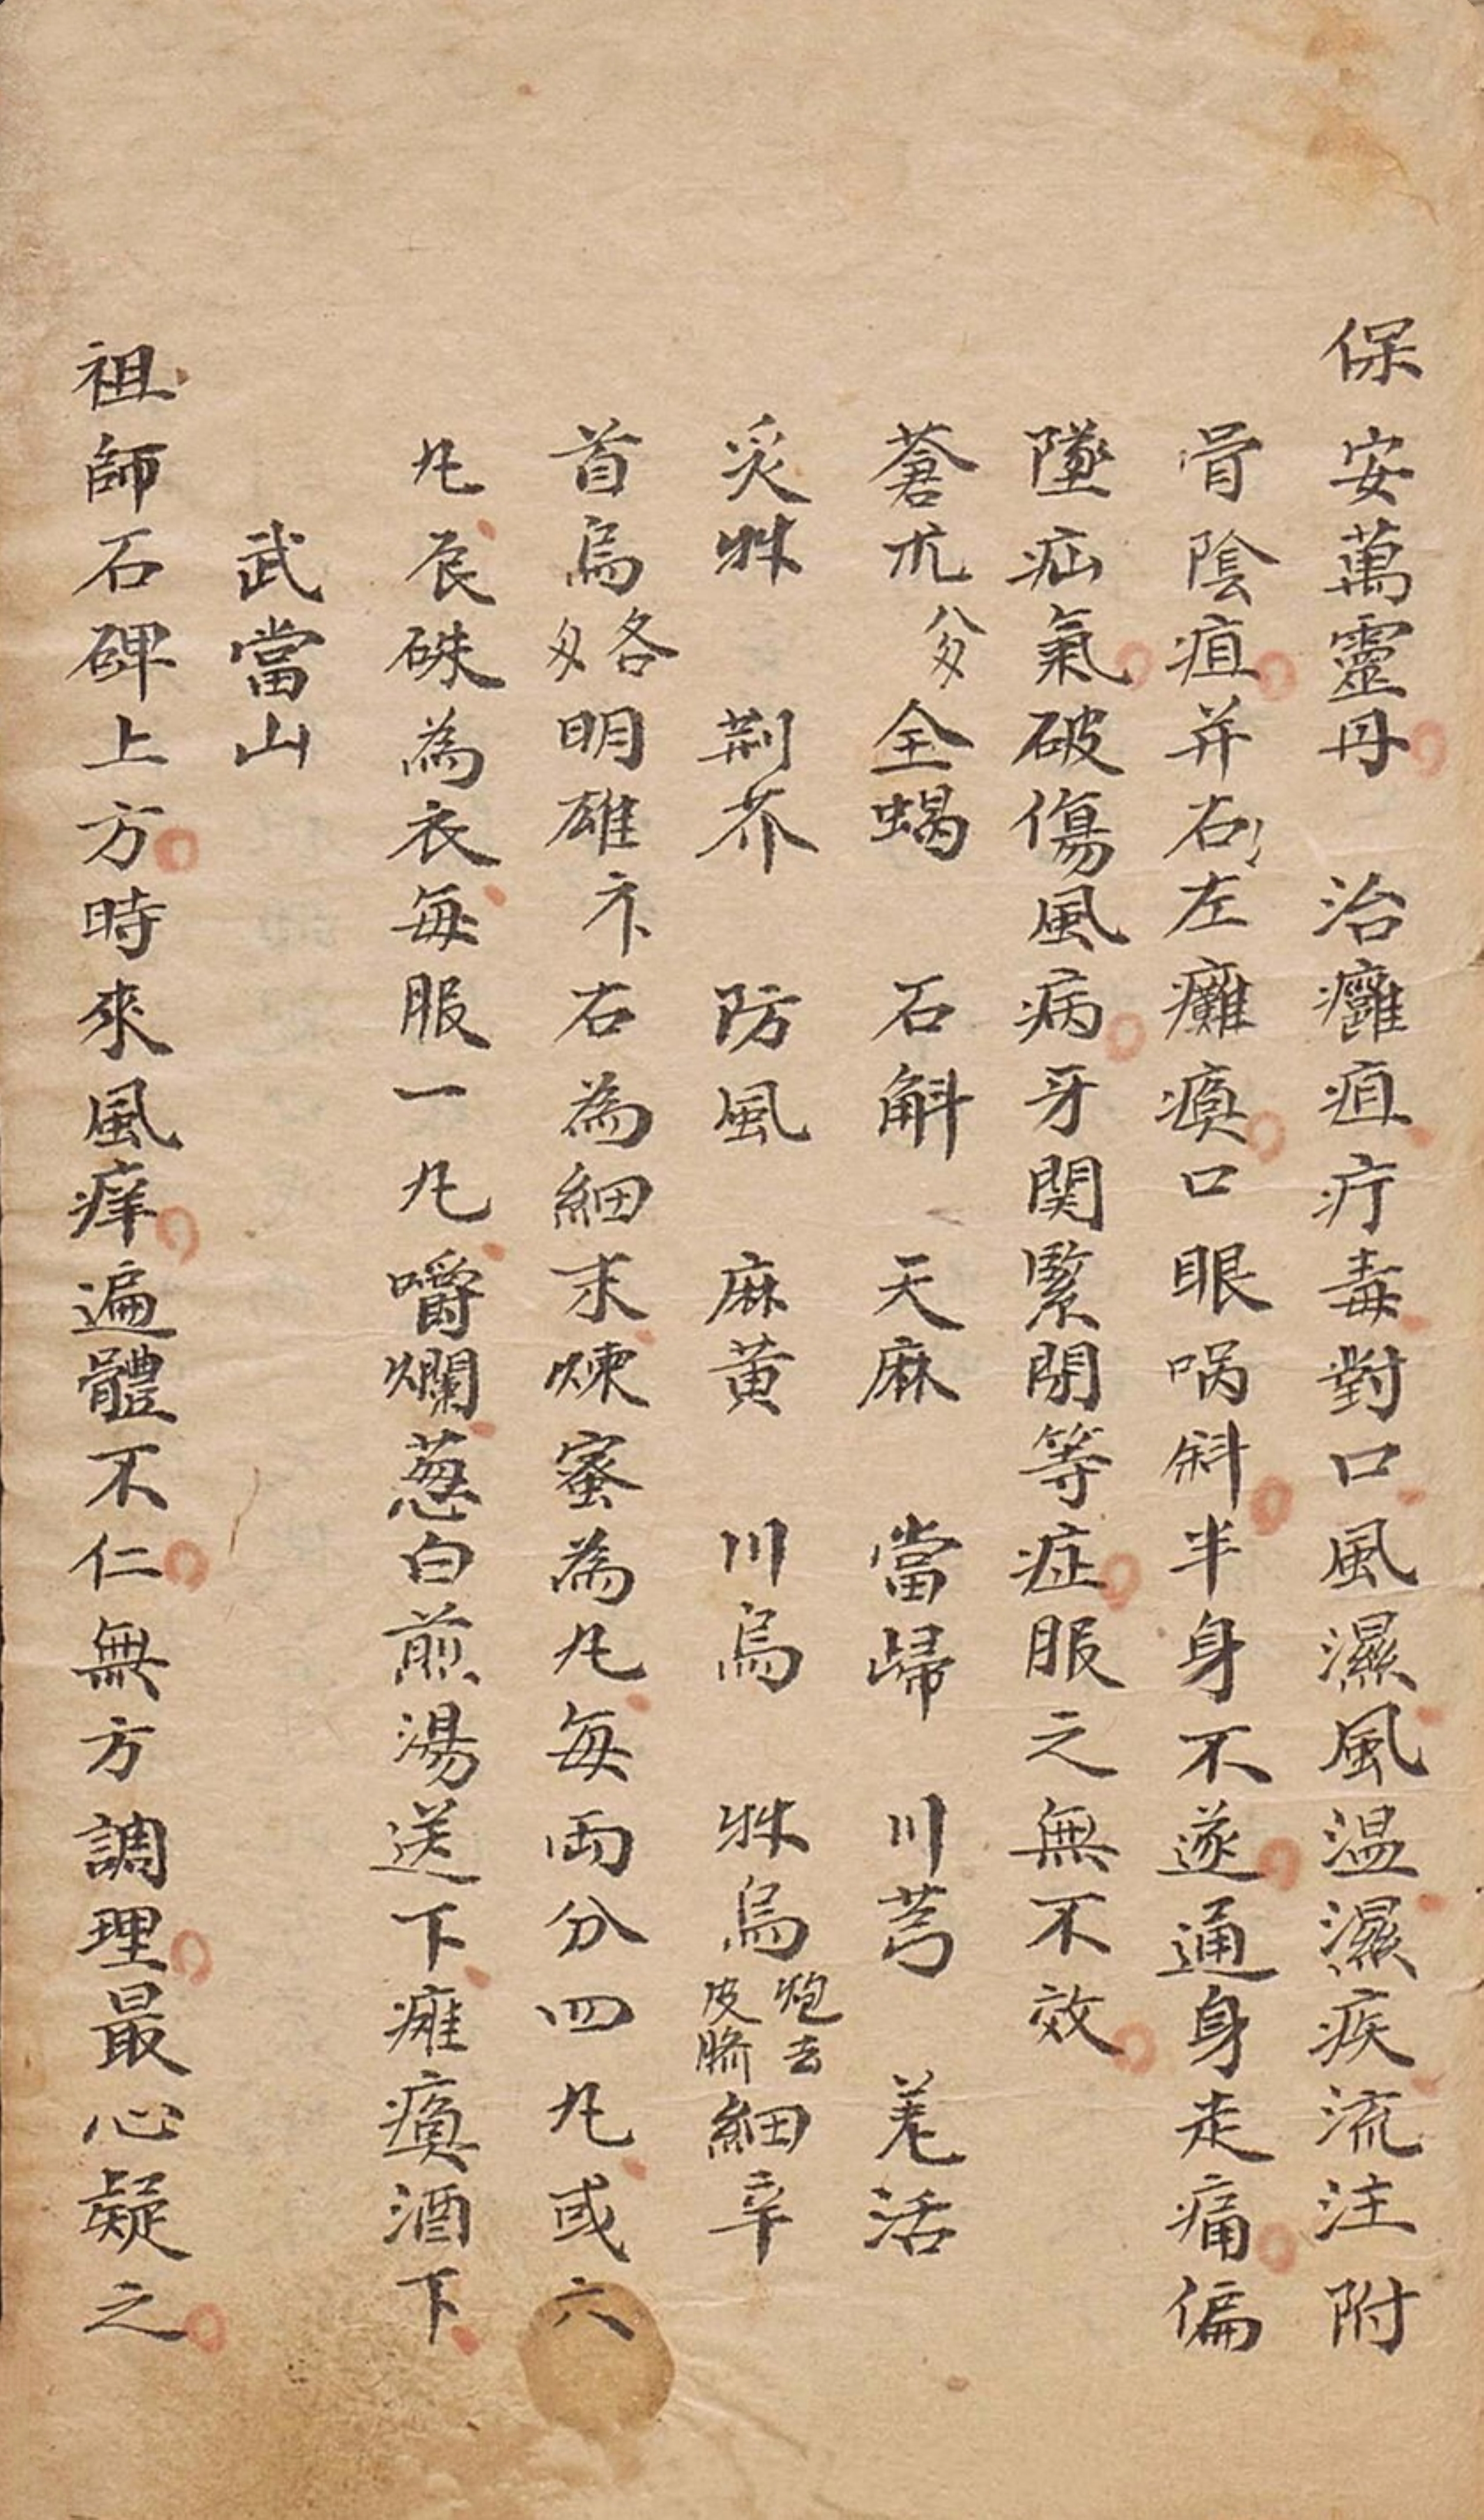 保安萬靈丹 治癰疽疔毒對口風濕風温濕疾流注附
骨陰疽并右左癱瘓口眼㖞斜半身不遂通身走痛偏
墜疝氣破傷風病牙関緊閉等症服之無不效
蒼朮 全蝎 石斛 天麻 當歸 川芎 羌活
炙艸 荆芥 防風 麻黄 川烏 艸烏炮去皮臍細辛
首烏各 明雄 右為細末煉蜜為丸每両分四丸或六
丸辰硃為衣每服一丸嚼爛葱白煎湯送下癱瘓酒下
武當山
祖師石碑上方時來風痒遍體不仁無方調理最心疑之